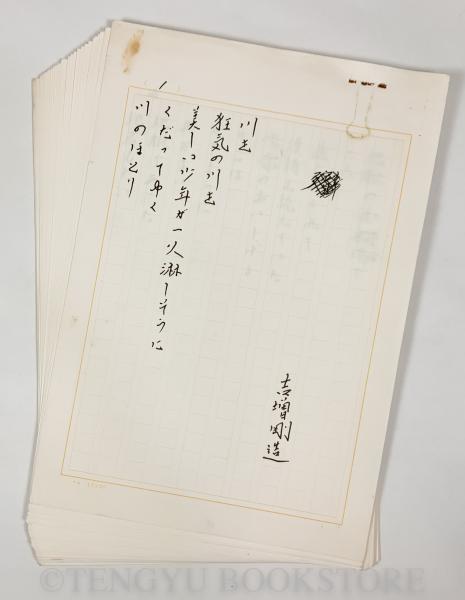 吉増剛造
川を
狂気の川を
美しい少年が一人淋しそうに
くだってゆく
川のほとり
©TENGYU BOOKSTORE